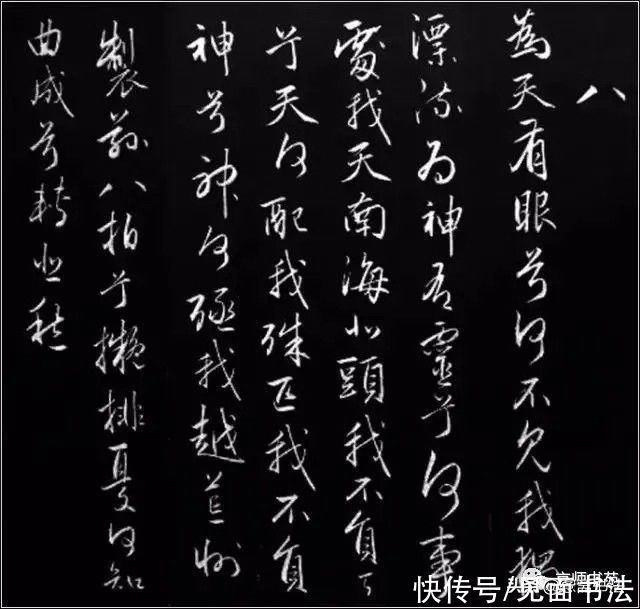 八
為天有眼兮何不見我獨
漂流為神有靈兮何事
處我天南海北頭我不負
兮天何配我殊匹我不負
神兮神何殛我越荒州
製茲八拍兮擬排憂何知
曲成兮轉悲愁
快传号/见面书法